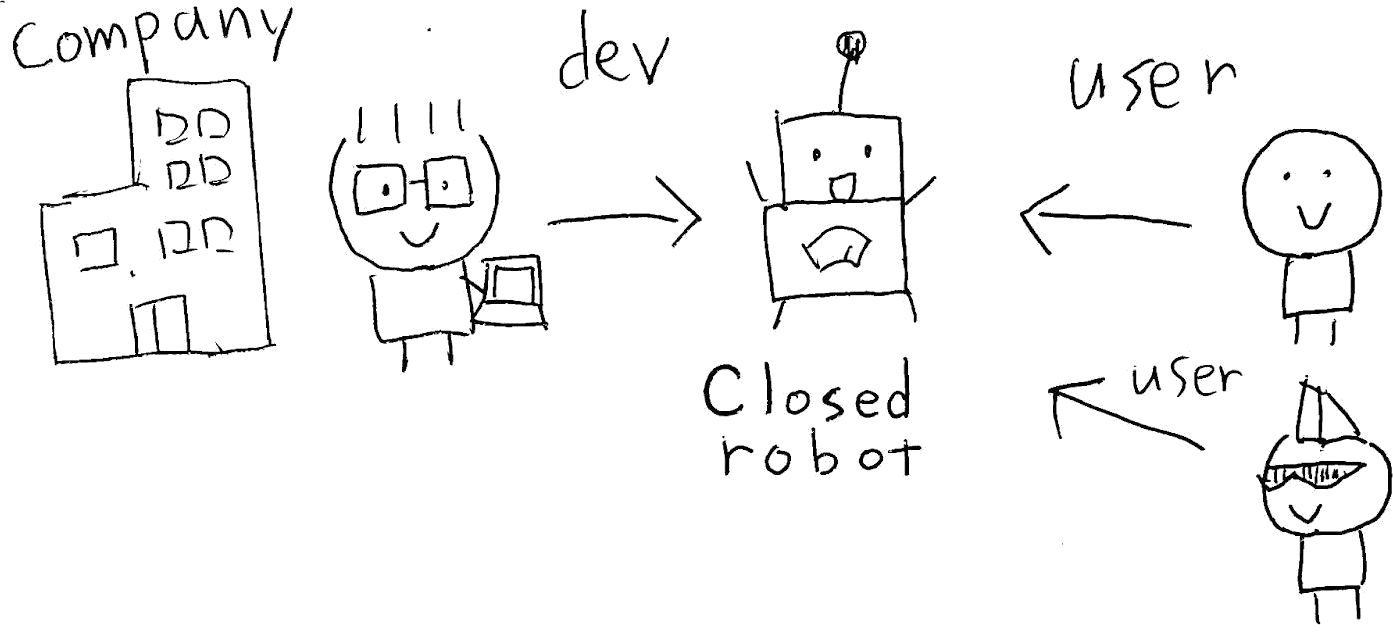 Company
dev
user
Closed
robot
user